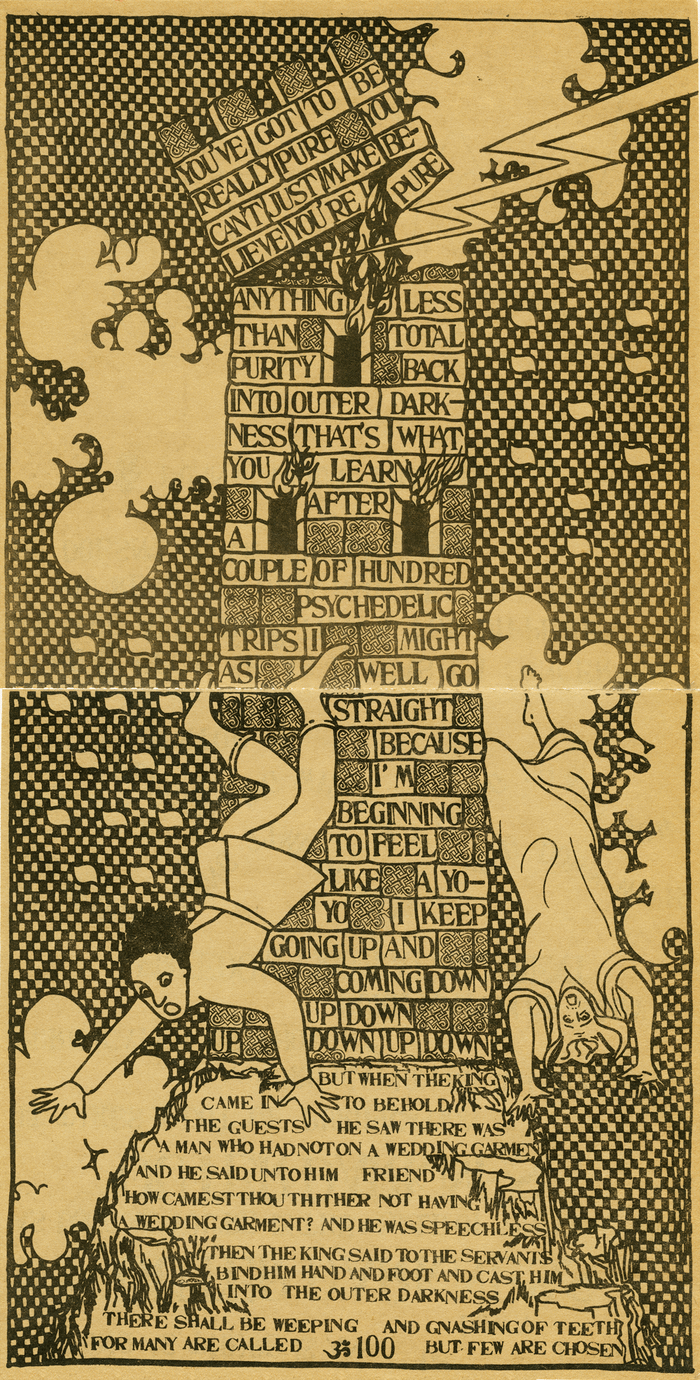 YOU'VE GOT TO BE
REALLY PURE YOU
CAN'T JUST MAKE BE-
LIEVE YOU'RE PURE
ANYTHING LESS
THAN TOTAL
PURITY BACK
INTO OUTER DARK-
NESS THAT'S WHAT
YOU LEARN
AFTER
A
COUPLE OF HUNDRED
PSYCHEDELIC
TRIPS I MIGHT
AS WELL GO
STRAIGHT
BECAUSE
I'M
BEGINNING
TO FEEL
LIKE A YO-
YO I KEEP
GOING UP AND
COMING DOWN
UP DOWN
UP DOWN UP DOWN
BUT WHEN THE KING
CAME IN TO BEHOLD
THE GUESTS HE SAW THERE WAS
A MAN WHO HAD NOT ON A WEDDING GARMEN
AND HE SAID UNTO HIM FRIEND
HOW CAMEST THOU THITHER NOT HAVING
A WEDDING GARMENT? AND HE WAS SPEECHLESS
THEN THE KING SAID TO THE SERVANTS
BIND HIM HAND AND FOOT AND CAST HIM
INTO THE OUTER DARKNESS
THERE SHALL BE WEEPING AND GNASHING OF TEETH
FOR MANY ARE CALLED ॐ 100 BUT FEW ARE CHOSEN